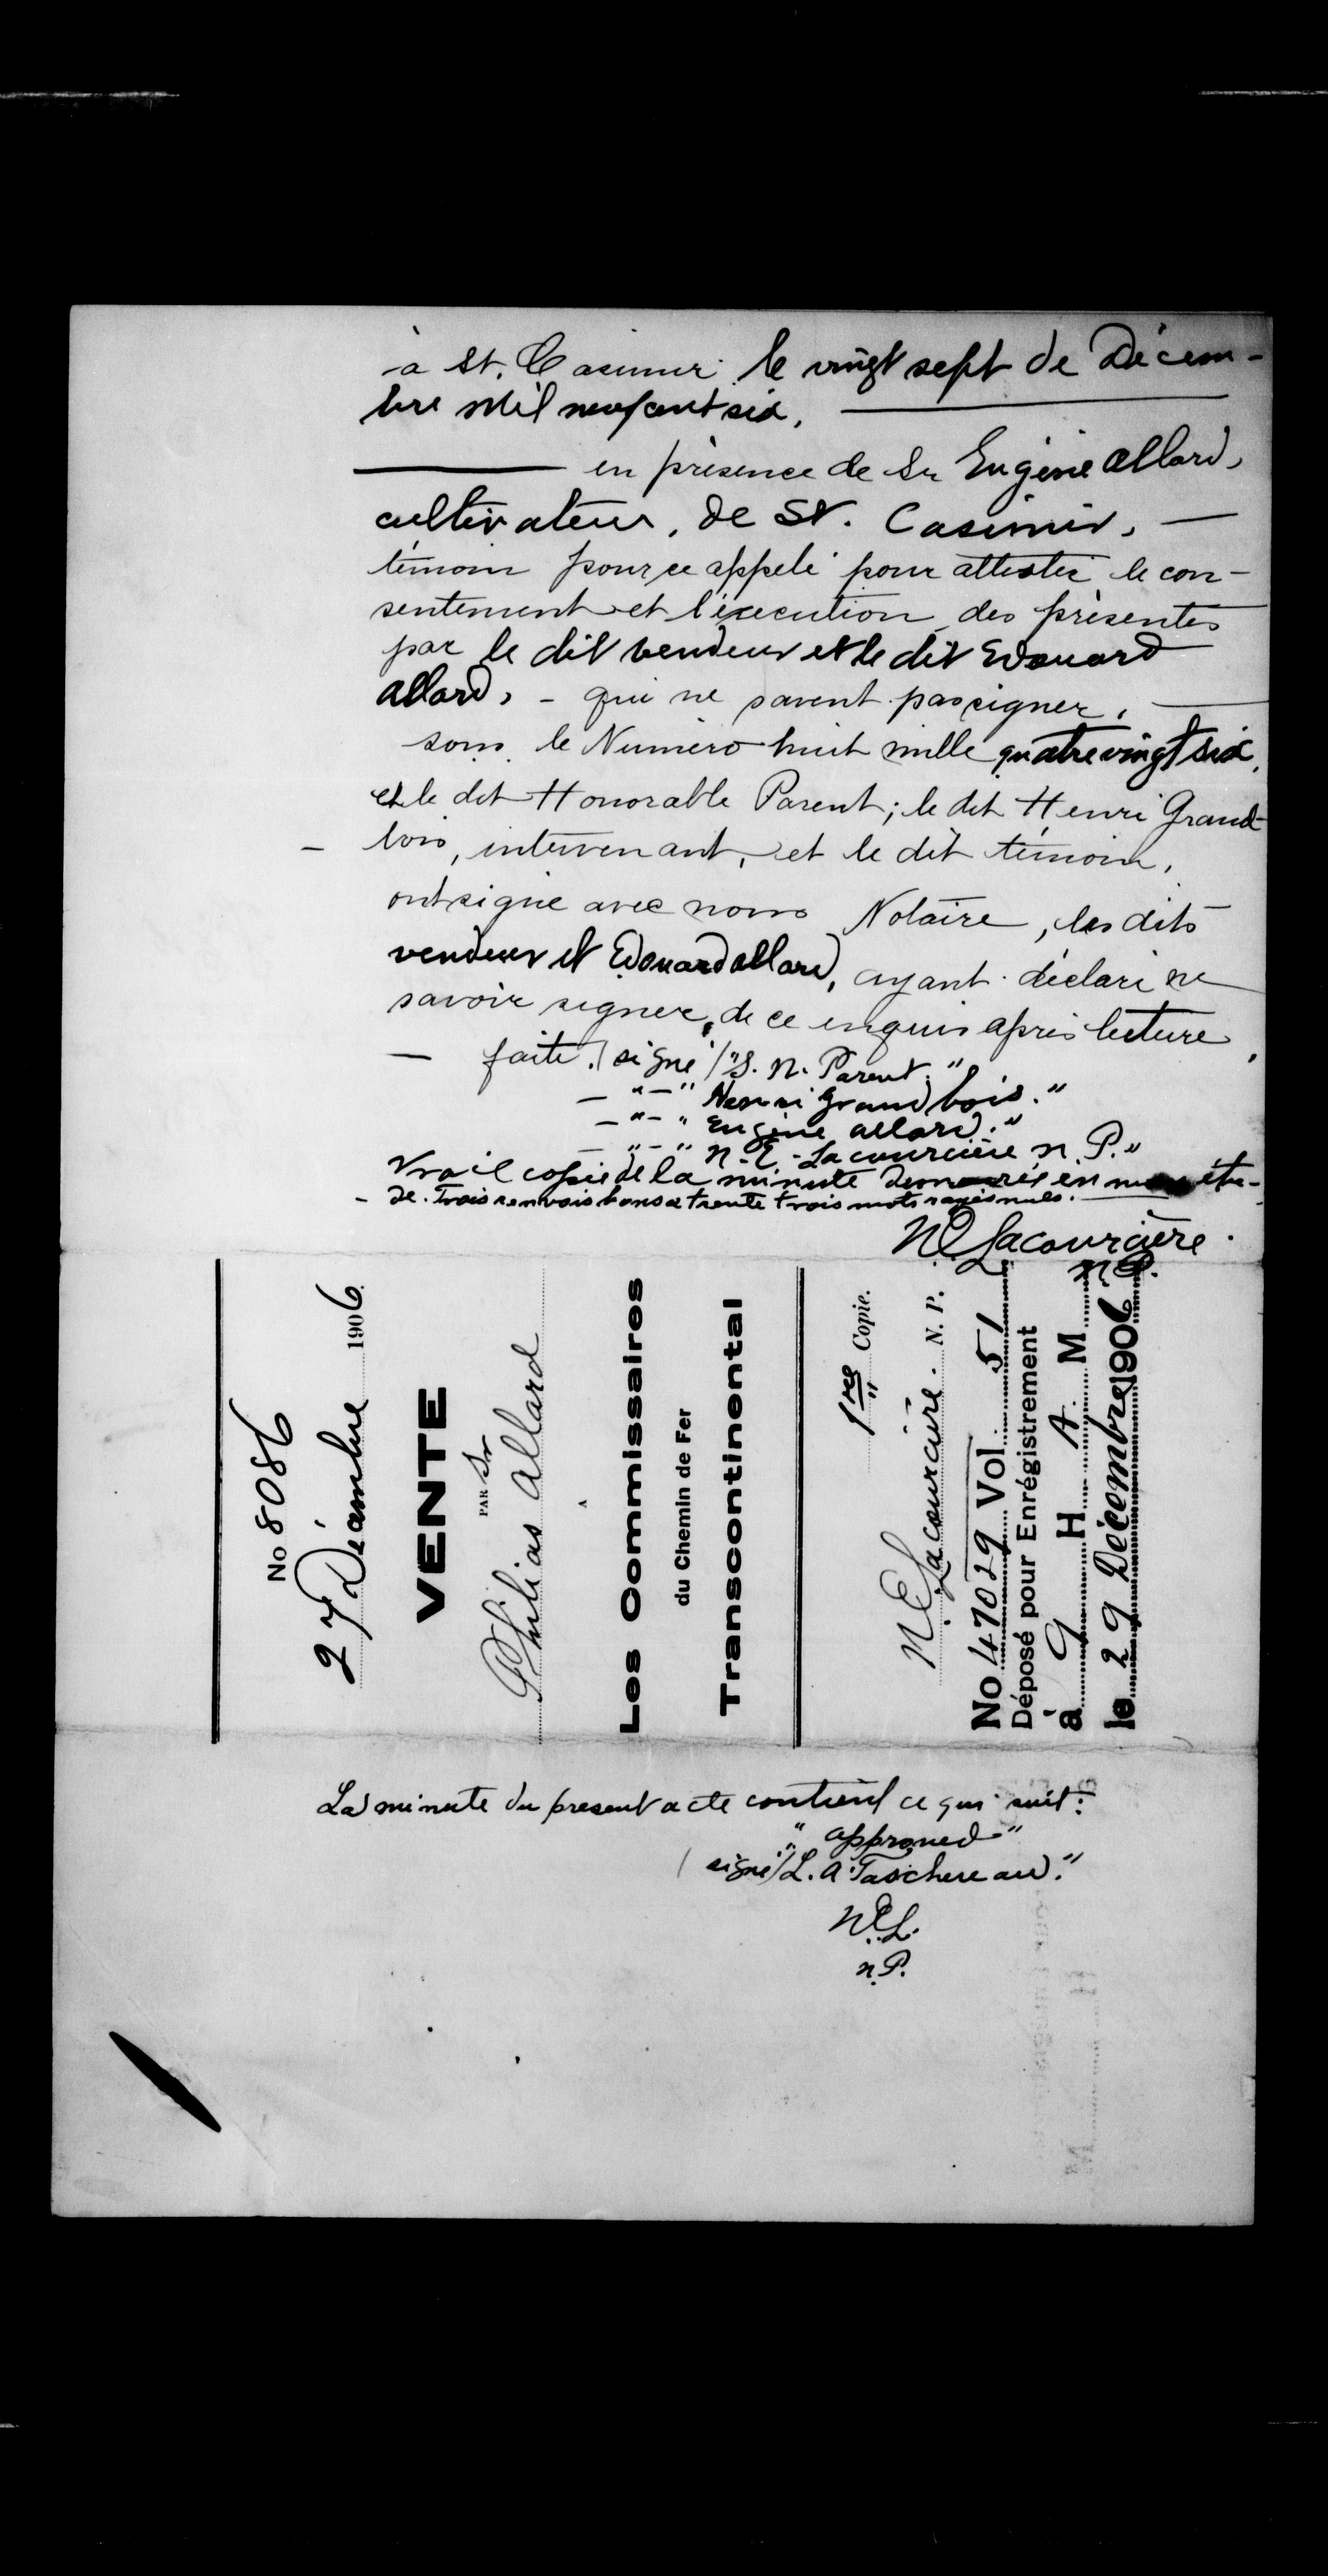 à St. Casimir le vingt sept de Décem-
bre mil neuf cent six.
en présence de Sr Eugène Allard,
cultivateur, de St. Casimir,
témoin pour ce appelé pour attester le con-
sentement et l'éxecution des présentes
par le dit vendeur et le dit Edouard
Allard, - qui ne savent pas signer,
sous le Numéro huit mille quatre vingt six,
et le dit Honorable Parent; le dit Henri Grand-
bois, intervenant, et le dit témoin,
ont signé avec nous Notaire, les dits
vendeur et Edouard Allard, ayant déclaré ne
savoir signer, de ce enquis après lecture
faite. (signé) "S. N. Parent."
- " - " Henri Grandbois."
- " - " Eugène Allard."
- " - " N. E. Lacourcière N. P."
Vraie copie de la minute demeurée en mon étu-
de. Trois renvois bons et trente trois mots rayés nuls.
N E Lacourcière.
N. P.
No 8086
27 Décembre 1906
VENTE
PAR Sr
Philias Allard
A
Les Commissaires
du Chemin de Fer
Transcontinental
1re Copie.
N. E. Lacourcière. N. P.
No 47029 Vol 51
Déposé pour Enrégistrement
à 9 H A M
le 29 Décembre 1906
La minute du present acte contient ce qui suit:
"approved"
(signé) "L. A. Taschereau."
N. E. L.
N. P.